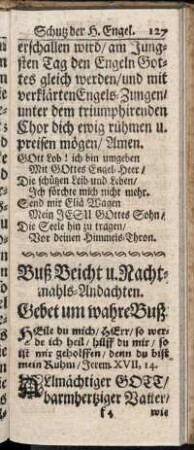 Schutz der H. Engel. 127
erschallen wird/ am Jung-
sten Tag den Engeln Got-
tes gleich werden/ und mit
verklärten Engels-Zungen/
unter dem triumphirenden
Chor dich ewig rühmen u.
preisen mögen/ Amen.
GOtt Lob! ich bin umgeben
Mit GOttes Engel-Heer/
Die schützen Leib und Leben/
Ich förchte mich nicht mehr.
Send mit Eliä Wagen
Mein JESU GOttes Sohn/
Die Seele hin zu tragen/
Vor deinen Himmels-Thron.
Buß Beicht u. Nacht-
mahls-Andachten.
Gebet um wahre Buß.
HEile du mich/ HErr/ so wer-
de ich heil/ hilff du mir/ so
ist mir geholffen/ denn du bist
mein Ruhm/ Jerem. XVII, 14.
Allmächtiger GOTT/
barmhertziger Vatter/
f 4 wie